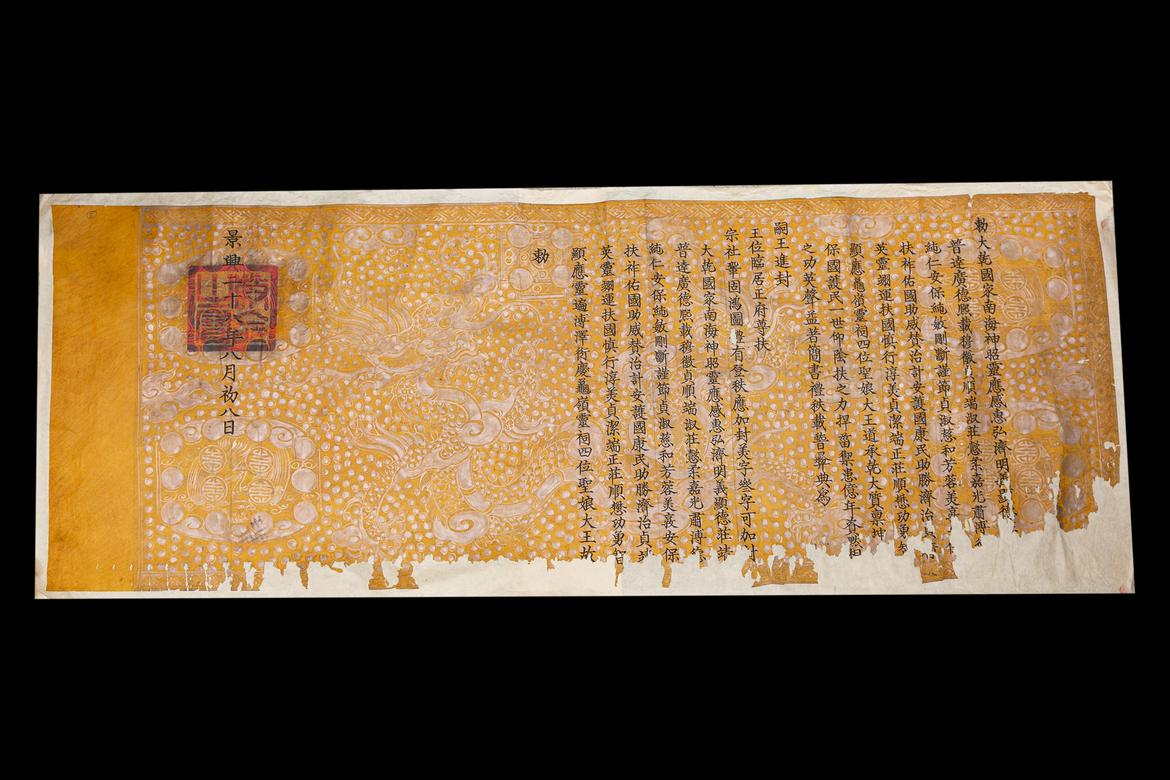 勅大乾國家南海神昭靈應感惠弘濟明
普達廣德熙載穆徽貞順端淑莊懿柔嘉光肅溥
純仁安保純敏剛斷謹節貞淑慈和芳蓉美
扶祚佑國助威贊治計安護國康民助勝濟治
英靈翊運扶國慎行淳美貞潔端正莊順懋功勇
顯應龜嶺靈祠四位聖娘大王道承乾大質稟坤
保國護民一世仰蔭扶之力捍菑禦患億年
之功英聲益著簡書禮秩載皆舉典爲
嗣王進封
王位臨居正府尊扶
宗社鞏固鴻圖禮有登秩應加封美字幾字可加封
大乾國家南海神昭靈應感惠弘濟明義顯德莊靖
普達廣德熙載穆徽貞順端淑莊懿柔嘉光肅溥
純仁安保純敏剛斷謹節貞淑慈和芳蓉美哀安保
扶祚佑國助威贊治計安護國康民助勝濟治貞
英靈翊運扶國慎行淳美貞潔端正莊順懋功勇
顯應靈遹溥澤衍慶龜嶺靈祠四位聖娘大王故
勅
景興二十八年八月初八日